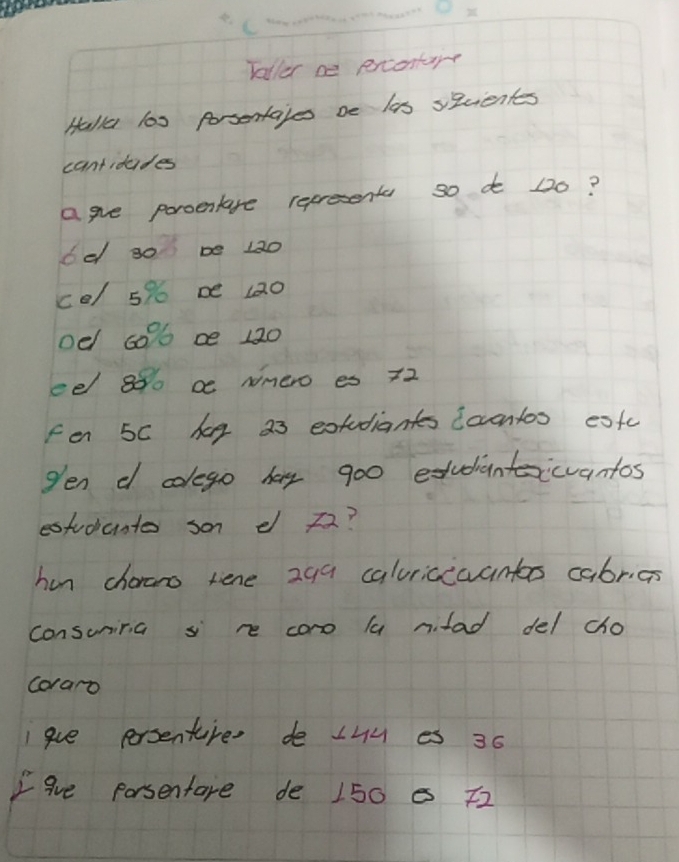 Taller De Porcentaje
Halla los Porsentajes De las siguientes
cantidades
a que porsentaje representa 30 de 120?
b el 30% De 120
c el 5% De 120
D el 60% De 120
e el 80% De número es 72
F en 5C hay 23 estudiantes ¿cuantos estu
g en el colego hay 900 estudiantes ¿cuantos
estudiantes son el 72?
h un chorano tiene 299 calorias ¿cuantos cabrias
consumiria si me como la mitad del cho
corano
i que porsentajes de 144 es 36
j que Porsentaje de 150 es 72